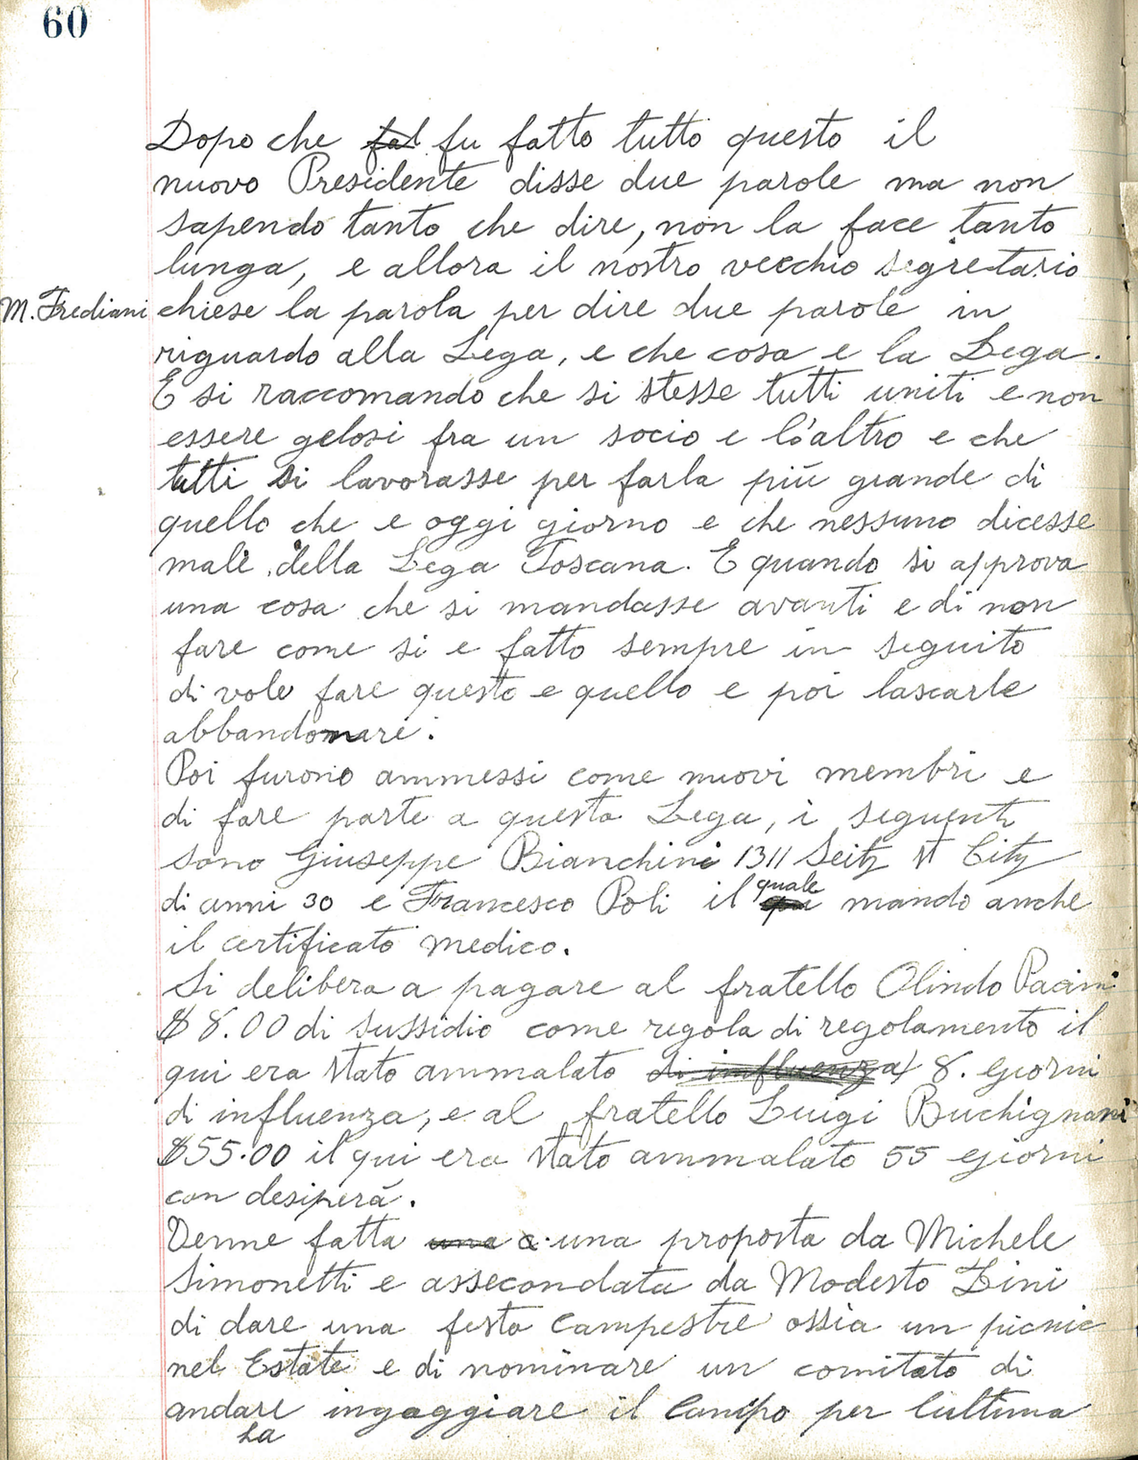 60
Dopo che fat fu fatto tutto questo il
nuovo Presidente disse due parole ma non
sapendo tanto che dire, non la face tanto
lunga, e allora il nostro vecchio segretario
M. Frediani chiese la parola per dire due parole in
riguardo alla Lega, e che cosa e la Lega.
E si raccomando che si stesse tutti uniti e non
essere gelosi fra un socio e lo'altro e che
tutti si lavorasse per farla più grande di
quello che e oggi giorno e che nessuno dicesse
male della Lega Toscana. E quando si approva
una cosa che si mandasse avanti e di non
fare come si e fatto sempre in seguito
di vole fare questo e quello e poi lascarle
abbandonare.
Poi furono ammessi come nuovi membri e
di fare parte a questa Lega, i seguenti
sono Giuseppe Bianchini 1311 Seitz St City
di anni 30 e Francesco Poli il quale mando anche
il certificato medico.
Si delibera a pagare al fratello Olindo Pacini
$ 8.00 di sussidio come regola di regolamento il
qui era stato ammalato di influenza 8. giorni
di influenza, e al fratello Luigi Buchignani
$55.00 il qui era stato ammalato 55 giorni
con desiperà.
Venne fatta una a una proposta da Michele
Simonetti e assecondata da Modesto Lini
di dare una festa campestre ossia un picnic
nel Estate e di nominare un comitato di
andare ingaggiare il Campo per l'ultima
La